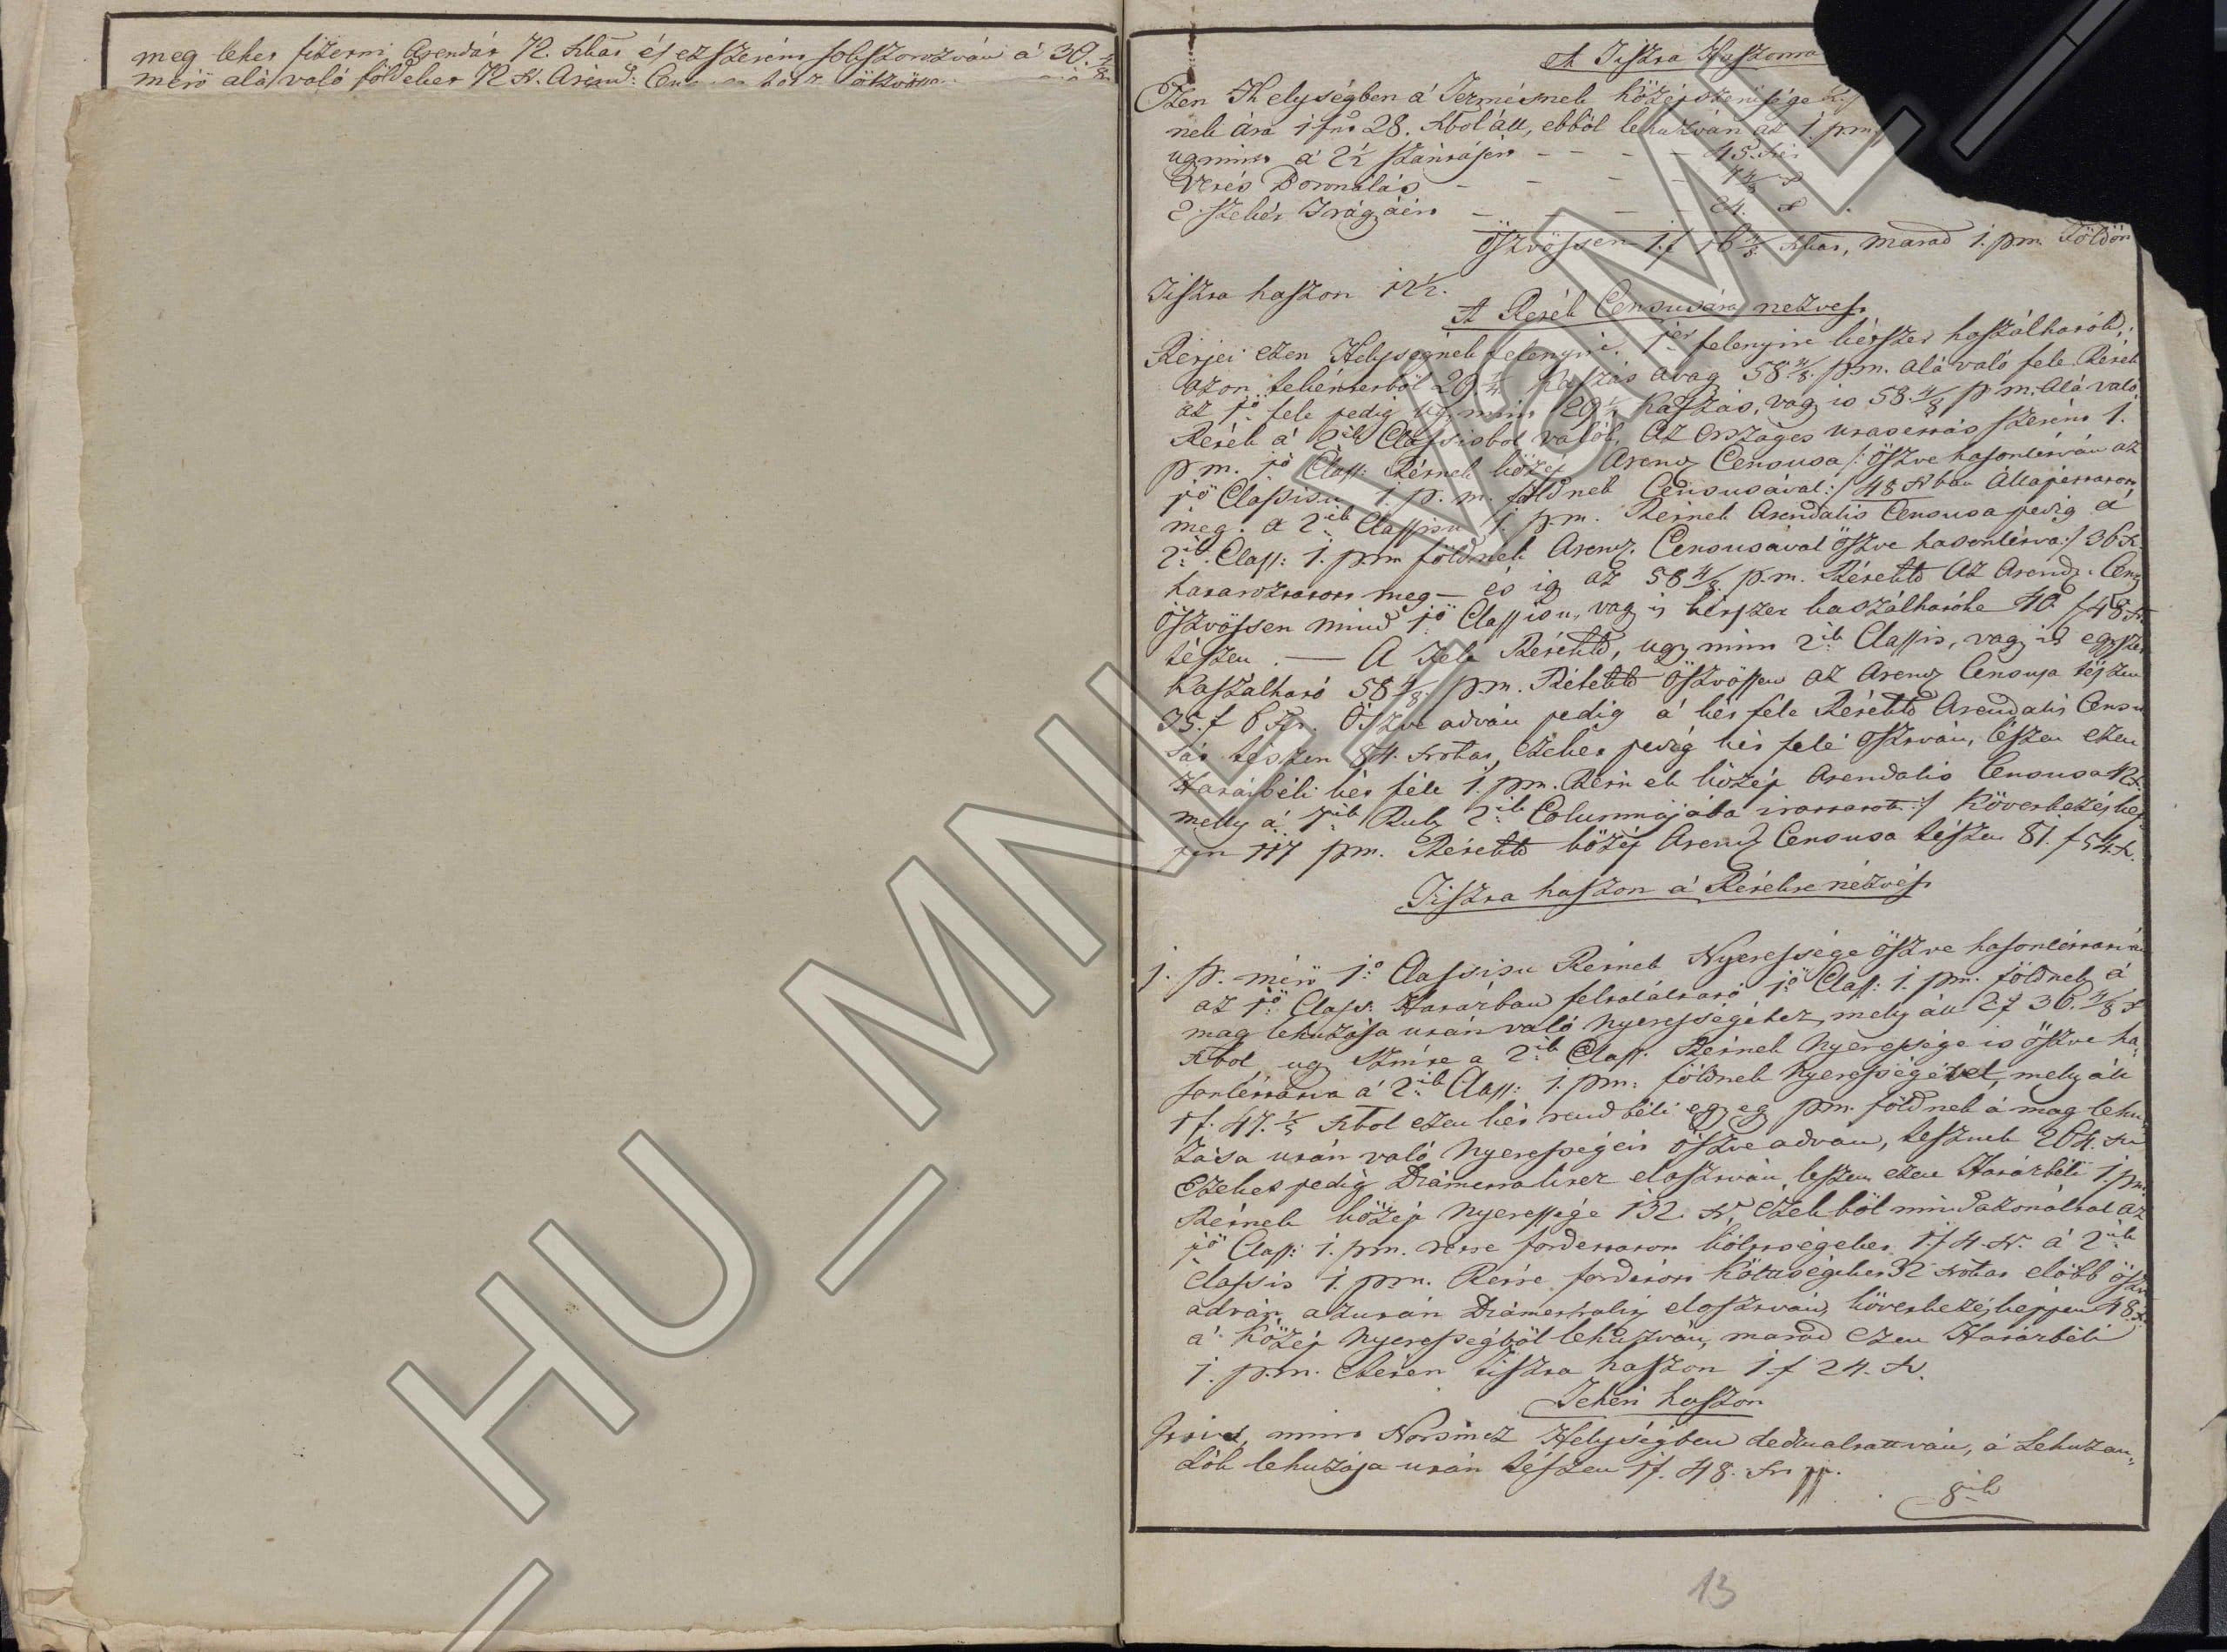 meg lehet fizetni Arendát 72. Xbar és ezszerént sokszorozván á 30. 4/8
mérö alá való földeket 72 Xr. Arend: Cen
A Tiszta Haszonra
Ezen Helységben á Termésnek középszerüsége
nek ára 1 fno 28. Xbol áll, ebböl lehuzván az 1. pm.
ugmint á 2½ szántásért - - - - 45. Xrt
Vetés Boronálás - - - - 7 4/8 X
2. szekér Trágyáért - - - - 24. X
Öszvössen 1. f 16 4/8 Xbar, marad 1. pm. Földön
Tiszta haszon 12½.
A Rétek Censussára nézvest
Rétjei ezen Helységnek felenyire kétszer kaszálhatók;
azon tekéntetböl 29¼ kaszás avag 58 4/8. p.m. alá való fele Rétek
az 1ö fele pedig ug mint 29¼ Kaszás, vag is 58. 4/8 p.m. alá való
Rétek á 2ik Classisbol valók. Az Országos szerént 1.
p.m. 1ö Class: Rétnek közép Arend Censusa /: öszve hasonlétván az
1ö Classisu 1. p.m. földnek Censusával:/ 48 Xrbau állapéttatott
meg. a 2ik Classisu 1. p.m. Rétnek Arendalis Censusa pedig á
2ik. Class: 1. p.m földnek Arend. Censusával öszve hasonlétva:/ 36 Xr.
határoztatott meg — és ig az 58 4/8 p.m. Rétektö az Arend. Cens
öszvössen mind 1ö Classisu, vag is kétszer kaszálhatóke 46 f 48 Xr.
tészen. — A Fele Rétektö, ugy mint 2ik Classis, vagy is egyszer
kaszálható 58 4/8. p.m. Rétektö öszvössen az Arend Censusa tészen
35. f 6 Xr. Öszve adván pedig á két féle Rétektö Arendalis Censu
sát tészen 84. Xrotat, ezeket pedig két felé osztván, lészen ezen
Határbéli két féle 1. p.m. Rétnek közép Arendalis Censusa 42 X.
melly á 7ik Rub 2ik Columnájába irattatot:/ Következésképpen
117 p.m. Rétektö közép Arend Censusa tészen 81. f 54 X.
Tiszta haszon á Rétekre nézvést
1. p. mérö 1ö Classisu Rétnek Nyeressége öszve hasonléttatván
az 1ö Class. Határban feltaláltató 1ö Class: 1. pm. földnek á
mag lehuzása után való nyerességéhez, mely áll 2 f 36. 4/8 X
Xbol, ug szinte a 2ik Class. Rétnek nyeressége is öszve ha-
sonléttatva á 2ik Class: 1. pm. földnek nyerességével, mely áll
1 f. 47. ½ Xbol ezen két rendbéli egy eg pm. földnek á mag lehu-
zása után való nyerességeit öszve adván, tesznek 264. Xr
Ezeket pedig Diametraliter elosztván, leszen ezen Határbéli 1. pm.
Rétnek közép nyeressége 132 Xr, ezekböl mindazonáltal az
1ö Class: 1. pm. rétre fordettatott költségeket 1. f 4. Xr. á 2ik
Classis 1. pm. Rétre fordétott költségeket 32 Xrotat elöbb öszve
adván, azután Diametraliz elosztván, következésképpen 48 X.
á közép nyerességböl lehuzván, marad ezen Határbéli
1. p.m. Réten tiszta haszon 1. f 24. Xr.
Tehén haszon
mint Helységben dedualtattván, á Lehuzan-
dók lehuzása után tészen 1 f. 48. Xr pp.
8ik
13
_HU_MNL_VSML_